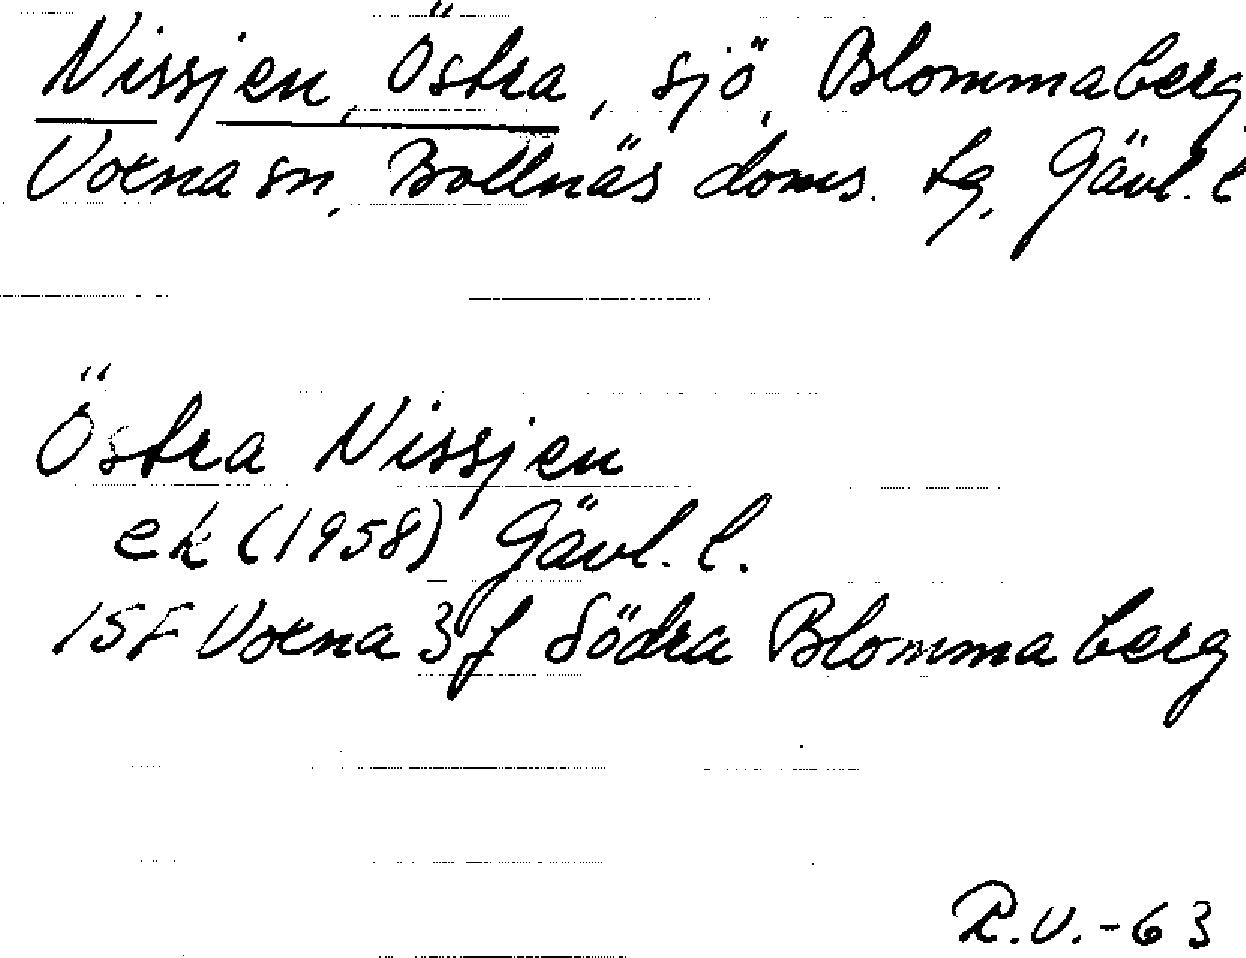 Nissjen, Östra, sjö, Blommaberg,
Voxna sn, Bollnäs doms. tg, Gävl. l
Östra Nissjen
ek (1958) Gävl. l.
15F Voxna 3f Södra Blommaberg
R.V.-63